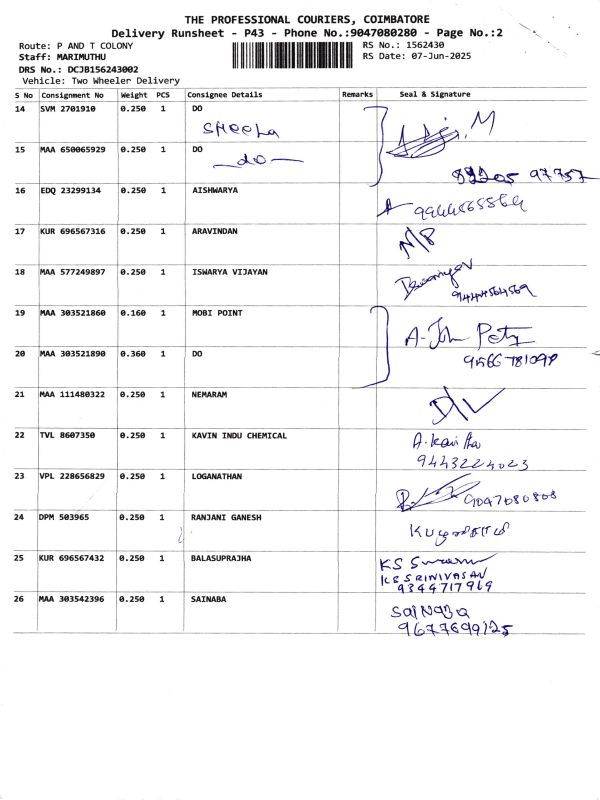 THE PROFESSIONAL COURIERS, COIMBATORE
Delivery Runsheet - P43 - Phone No.:9047080280 - Page No.:2
Route: P AND T COLONY RS No.: 1562430
Staff: MARIMUTHU RS Date: 07-Jun-2025
DRS No.: DCJB156243002
Vehicle: Two Wheeler Delivery
S No Consignment No Weight PCS Consignee Details Remarks Seal & Signature
14 SVM 2701910 0.250 1 DO
SHEELA
15 MAA 650065929 0.250 1 DO
do
97757
16 EDQ 23299134 0.250 1 AISHWARYA
17 KUR 696567316 0.250 1 ARAVINDAN
18 MAA 577249897 0.250 1 ISWARYA VIJAYAN
19 MAA 303521860 0.160 1 MOBI POINT
A. John
20 MAA 303521890 0.360 1 DO
21 MAA 111480322 0.250 1 NEMARAM
D/L
22 TVL 8607350 0.250 1 KAVIN INDU CHEMICAL
A. Kavitha
9443224023
23 VPL 228656829 0.250 1 LOGANATHAN
9047080808
24 DPM 503965 0.250 1 RANJANI GANESH
25 KUR 696567432 0.250 1 BALASUPRAJHA
KS
KS SRINIVASAN
9344717969
26 MAA 303542396 0.250 1 SAINABA
SAINABA
9677699125